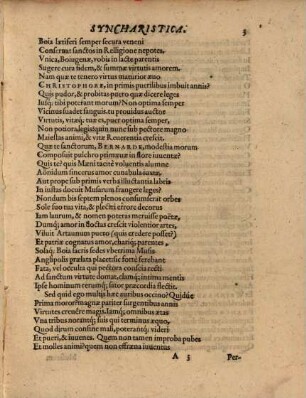 SYNCHARISTICA. 3
Boia lætiferi semper secura veneni
Conseruas sanctos in Relligione nepotes.
Vnica, Boiugenæ, vobis in lacte parentis
Sugere cura fidem, & summæ virtutis amorem.
Nam quæ te tenero virtus maturior æuo
CHRISTOPHORE, in primis puerilibus imbuit annis?
Quis pudor, & probitas puero quæ dicere leges
Iusq; tibi poterant morum? Non optima semper
Vicinus suadet sanguis. tu prouidus auctor
Virtutis, vitæq; tuæ es, puer optima semper,
Non potior alegis quin nunc sub pectore magno
Maiestas animi, & vitæ Reuerentia crescit.
Quæ te sanctorum, BERNARDE, modestia morum
Composuit pulchro primæuæ in flore iuuentæ?
Quis te? quis Mani tacitè voluentis alumne
Abondum sincerus amor cunabula
Aut prope sub primis verba illuctantia labris
In iustos docuit Musarum frangere leges?
Nondum bis septem plenos consumserat orbes
Sole suo tua vita, & plectri errore decoros
Iam laurum, & nomen poteras meruisse poëtæ,
Dumq; amor in doctas crescit violentior artes,
Viluit Artaunum puero (quis credere posset?)
Et patriæ cognatus amor, chariq; parentes.
Solaq; Boia factis sedes vberrima Musis
Anglipolis præsula placet: sic fortè ferebant
Fata, vel occulta qui pectora conscia recti
Ad sanctum virtute domat, clamq; inimo mentis
Ipse hominum rerumq; sator præcordia flectit.
Sed quid ego multis hæc auribus occino? Quidue
Prima memor magnæ pariter surgentibus annis
Virtutes creuêre magis. Iamq; omnibus ætas
Vna tribus noratq; suis qui terminus æquo,
Quod dirum contine mali, poterantq; videri
Et pueri, & iuuenes. Quem non tamen improba pubes
Et molles animi? quem non effræna iuuentus
A 3 Per-